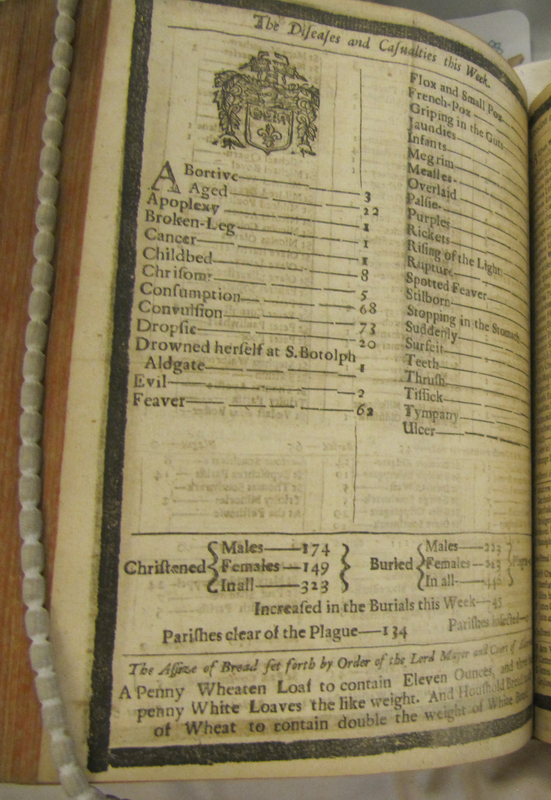 The Diſeaſes and Caſualties this Week.
ABortive 3
Aged 22
Apoplexy 1
Broken-Leg 1
Cancer 1
Childbed 8
Chriſoms 5
Conſumption 68
Convulſion 73
Dropſie 20
Drowned herſelf at S. Botolph
Aldgate 1
Evil 2
Feaver 62
Flox and Small Pox
French-Pox
Griping in the Guts
Jaundies
Infants
Megrim
Meaſles
Overlaid
Palſie
Purples
Rickets
Riſing of the Lights
Rupture
Spotted Feaver
Stilborn
Stopping in the Stomach
Suddenly
Surfeit
Teeth
Thruſh
Tiſſick
Tympany
Ulcer
Chriſtened { Males—174
Females—149
In all—323 }
Buried { Males—223
Females—
In all— }
Increaſed in the Burials this Week—45
Pariſhes clear of the Plague—134 Pariſhes Infected—
The Aſſize of Bread ſet forth by Order of the Lord Mayor and Court of
A Penny Wheaten Loaf to contain Eleven Ounces, and
penny White Loaves the like weight. And Houſhold Bread
of Wheat to contain double the weight of White